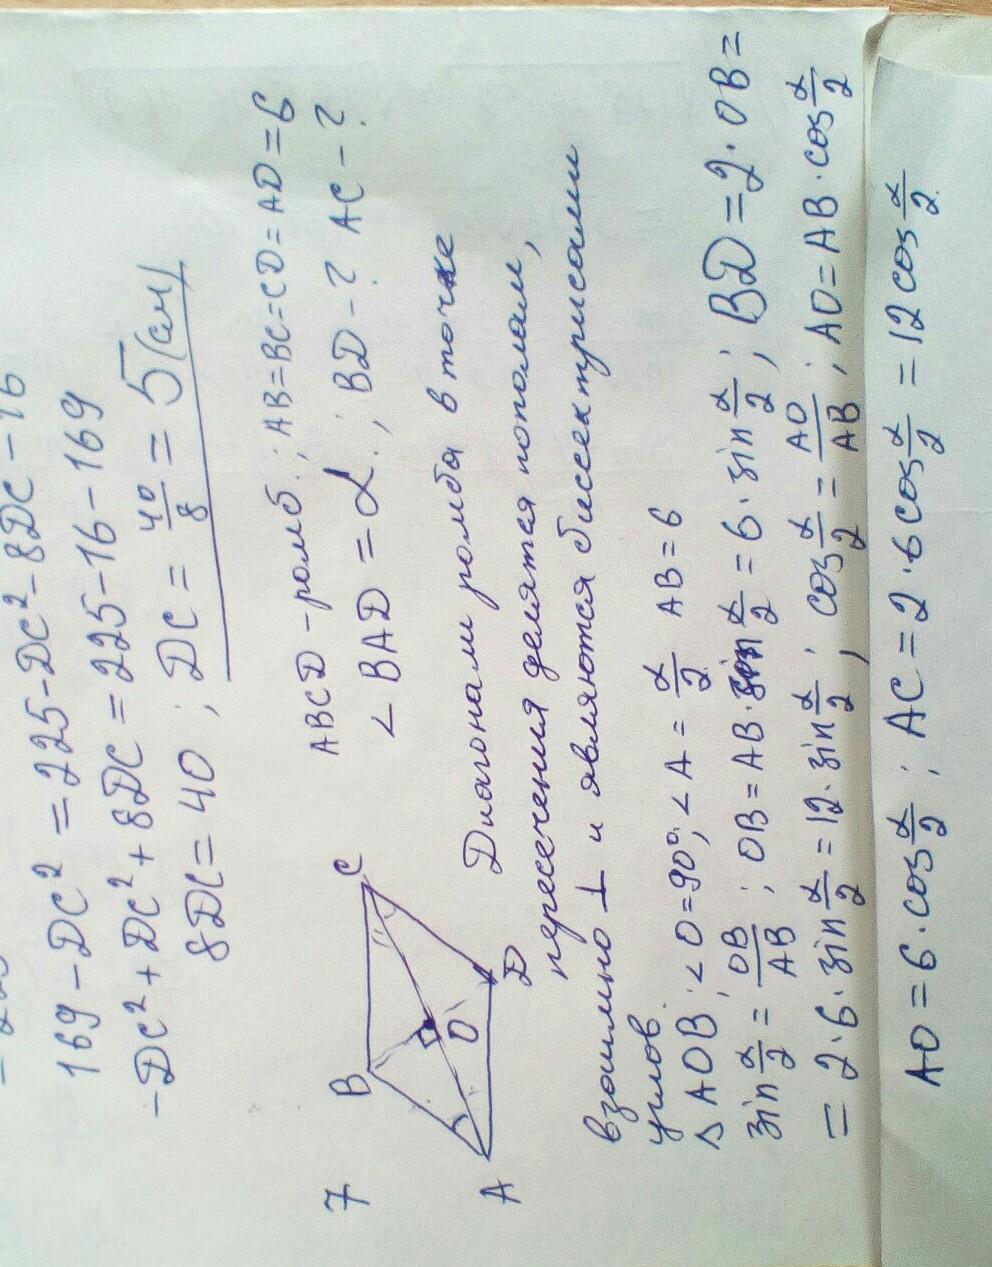 169 - DC² = 225 - DC² - 8DC - 16
-DC² + DC² + 8DC = 225 - 16 - 169
8DC = 40 ; DC = 40/8 = 5 (см)
7
ABCD - ромб ; AB = BC = CD = AD = 6
< BAD = α ; BD - ? AC - ?
B
C
A
D
O
Диагонали ромба в точке
пересечения делятся пополам,
взаимно ⊥ и являются биссектрисами
углов.
△ AOB ; < O = 90° ; < A = α/2 AB = 6
sin α/2 = OB/AB ; OB = AB · sin α/2 = 6 · sin α/2 ; BD = 2 · OB =
= 2 · 6 · sin α/2 = 12 · sin α/2 ; cos α/2 = AO/AB ; AO = AB · cos α/2
AO = 6 · cos α/2 ; AC = 2 · 6 cos α/2 = 12 cos α/2.